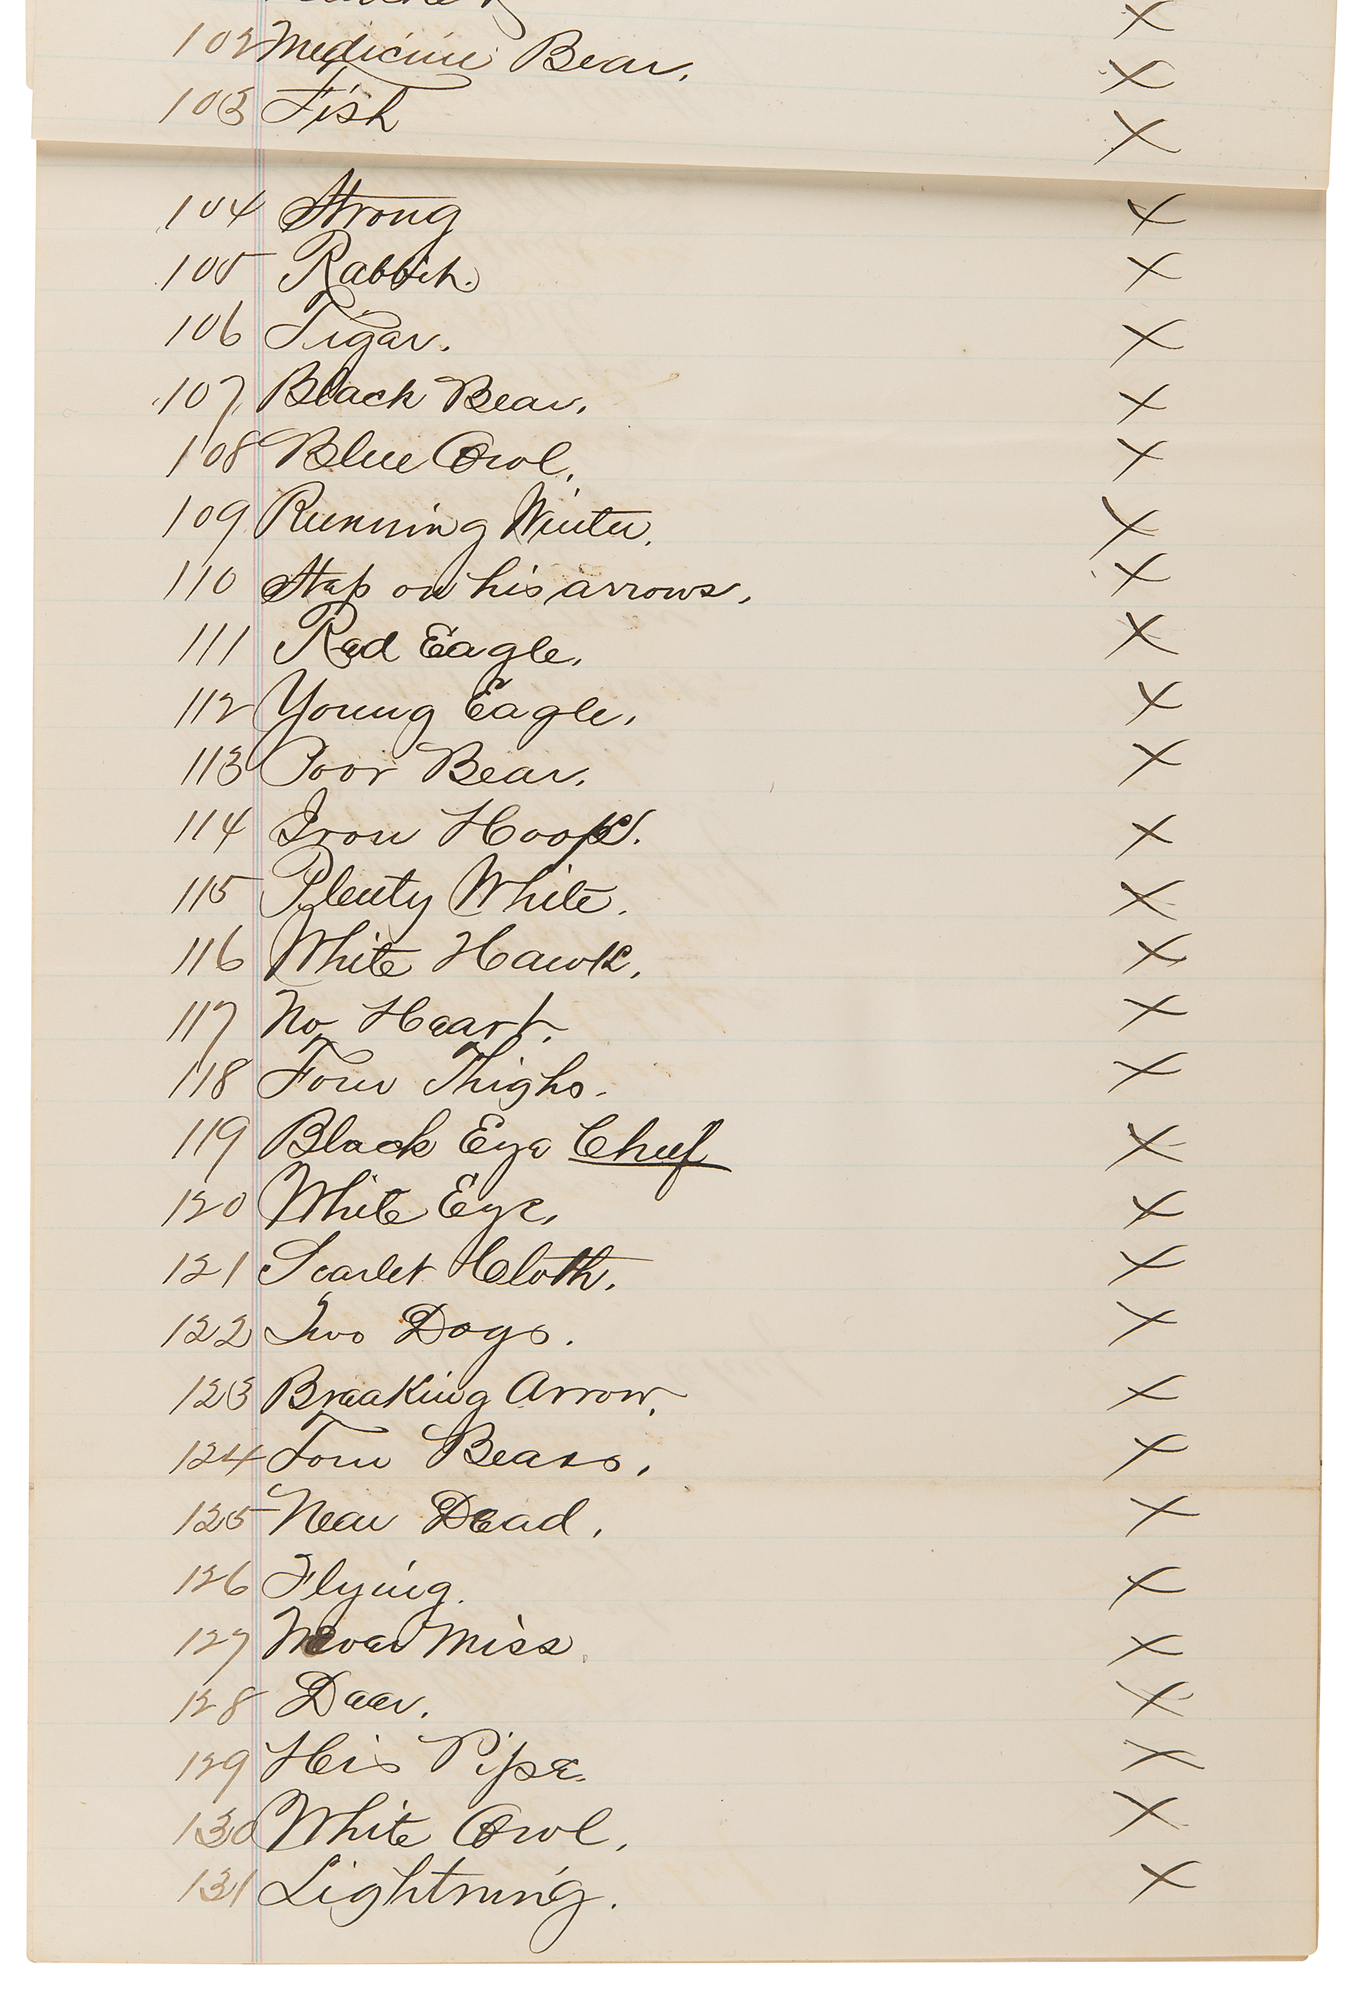 102 Medicine Bear. X
103 Fish X
104 Strong X
105 Rabbit. X
106 Tigar. X
107 Black Bear. X
108 Blue Owl. X
109 Running Winter. X
110 Step on his arrows. X
111 Red Eagle. X
112 Young Eagle. X
113 Poor Bear. X
114 Iron Hoop. X
115 Plenty White. X
116 White Hawk. X
117 No Heart. X
118 Four Thighs. X
119 Black Eye Chief X
120 White Eye. X
121 Scarlet Cloth. X
122 Two Dogs. X
123 Breaking Arrow. X
124 Four Bears. X
125 Near Dead. X
126 Flying. X
127 Never Miss. X
128 Deer. X
129 His Pipe. X
130 White Owl. X
131 Lightning. X